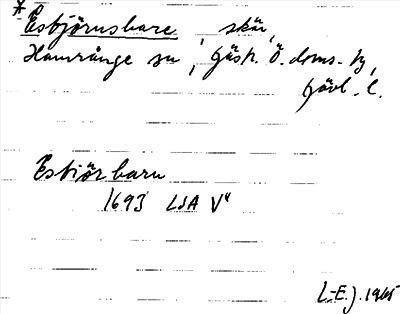 * Esbjörnsbare, skär,
Hamrånge sn, Gästr. Ö. doms. tg,
Gävl. l.
Esbiörbarn
1693 LSA V"
L-E. J. 1965